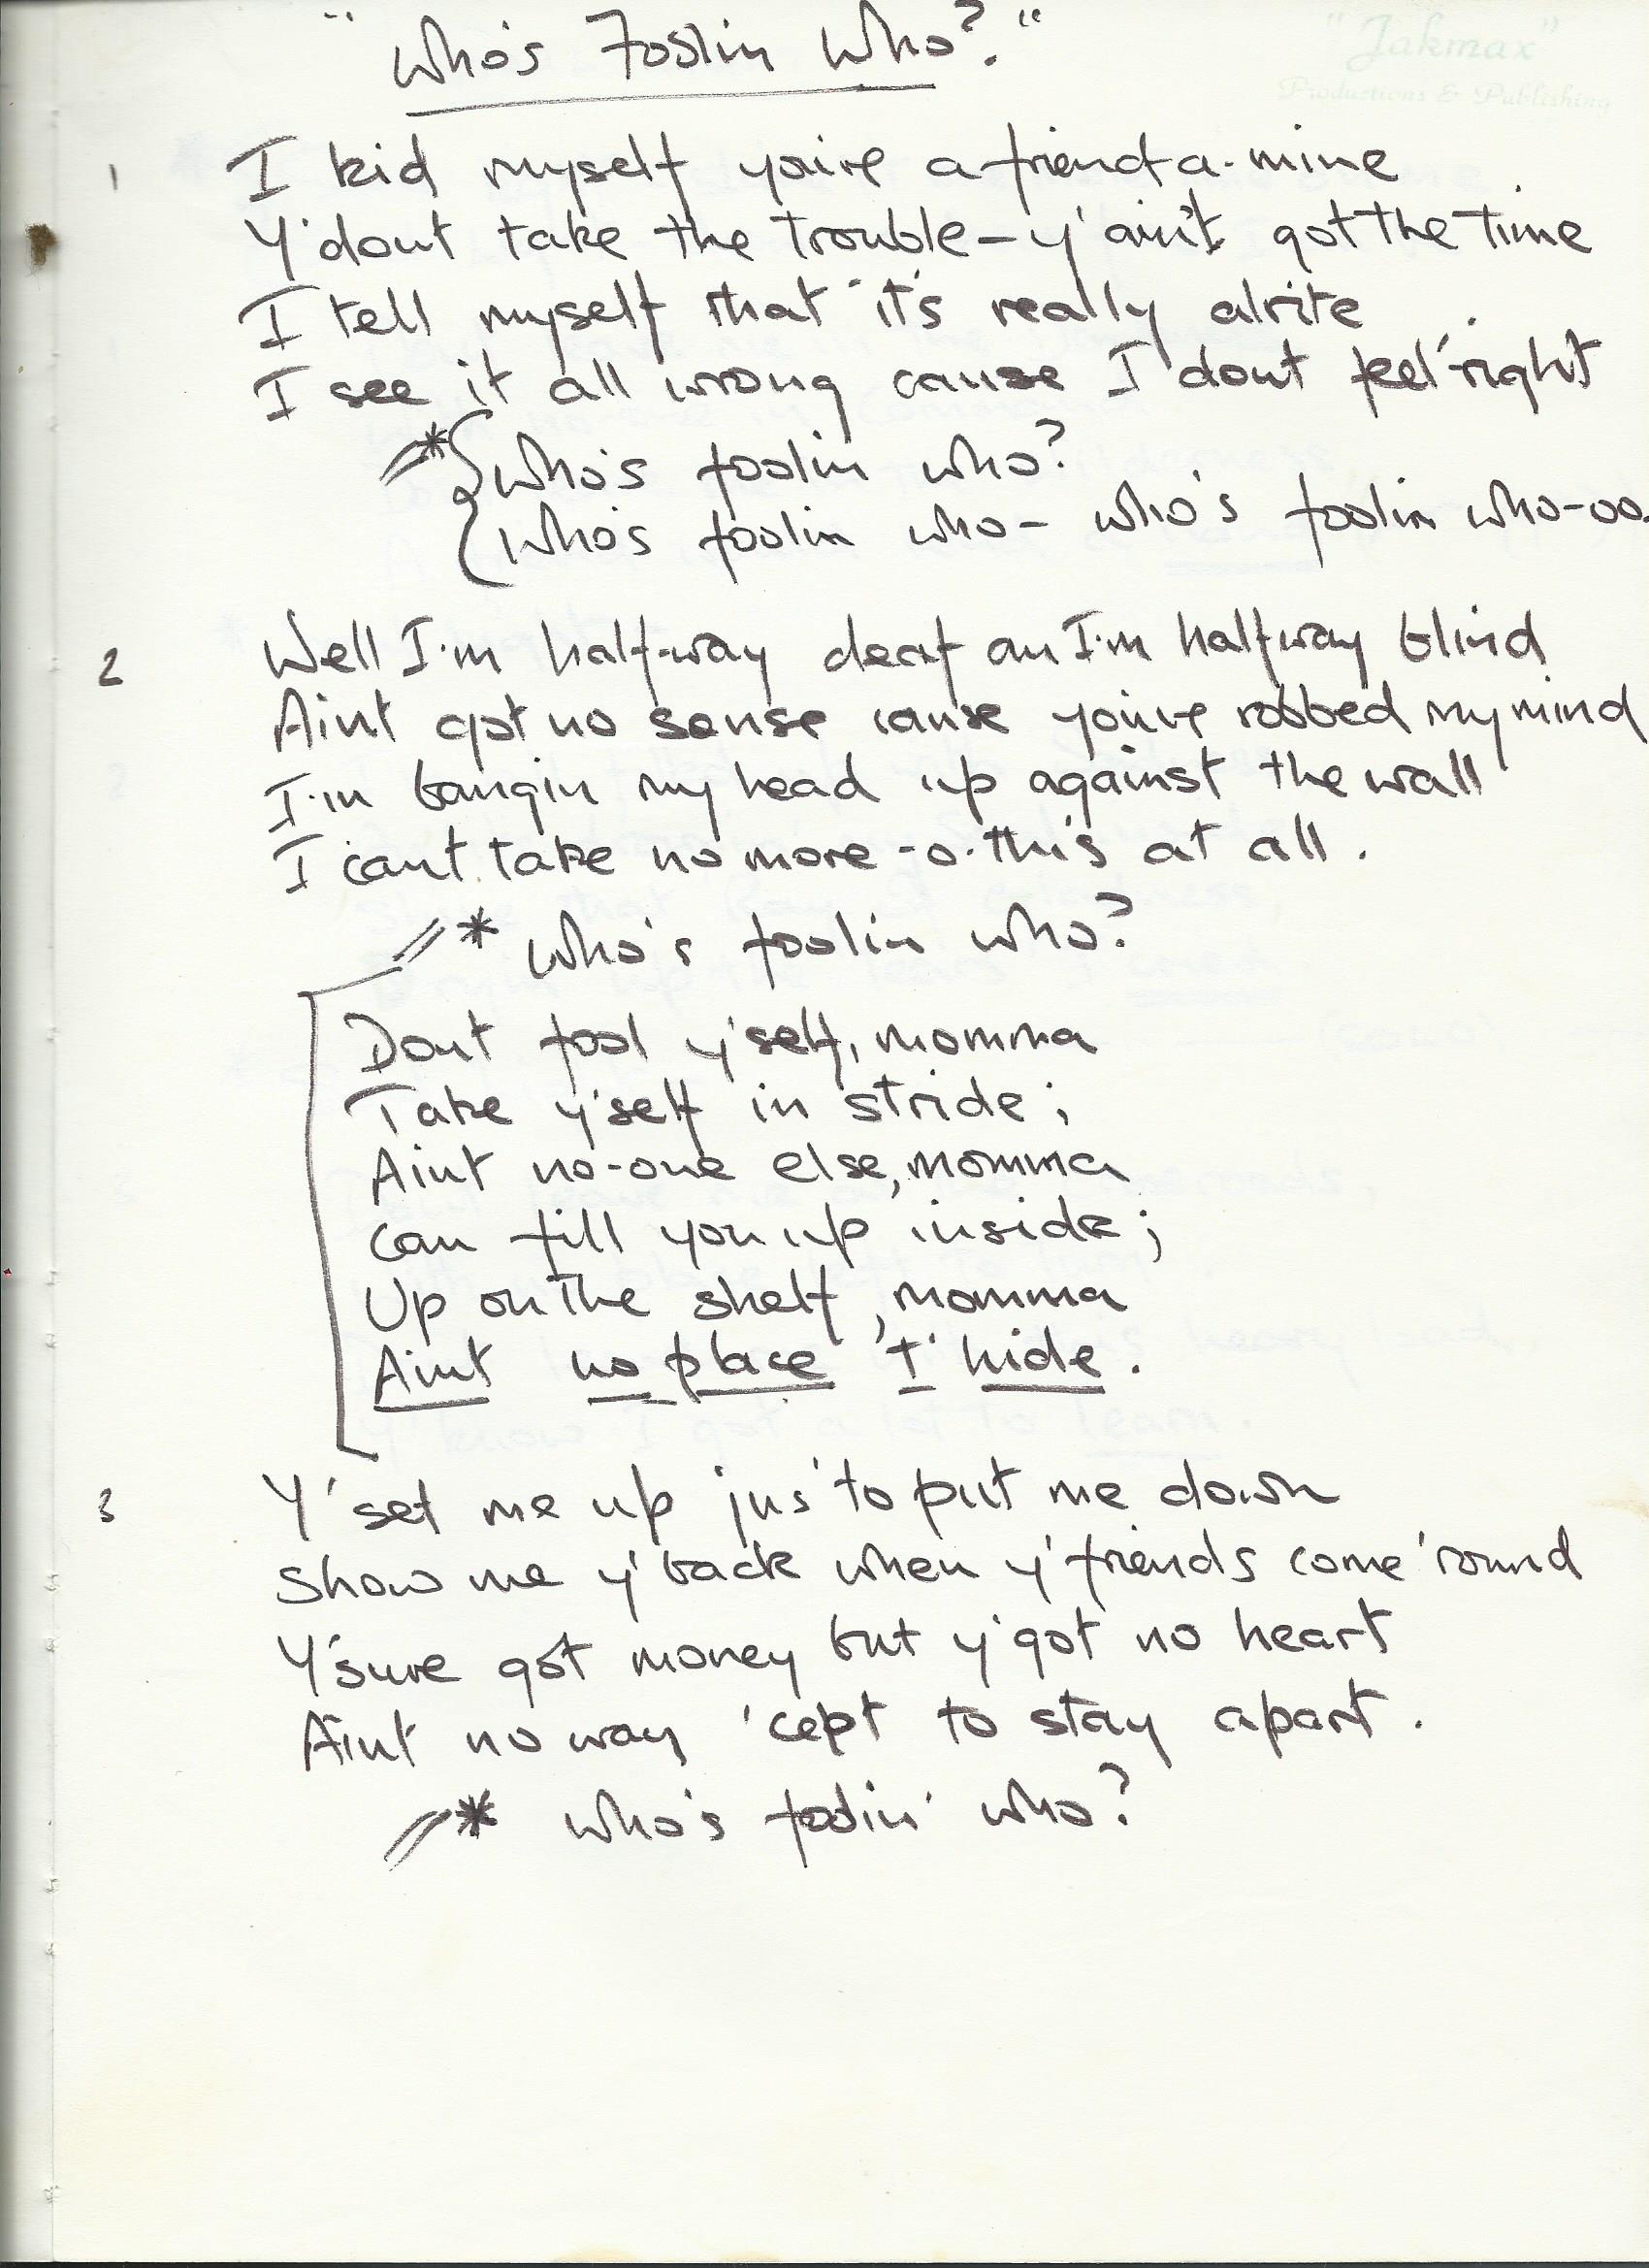 "Who's Foolin Who?"
"Jakmax"
Productions & Publishing
1 I kid myself you're a friend a-mine
Y'dont take the trouble – y'ain't got the time
I tell myself that it's really alrite
I see it all wrong cause I dont feel right
* Who's foolin who?
Who's foolin who – who's foolin who-oo.
2 Well I'm half-way deaf an I'm halfway blind
Aint got no sense cause you've robbed my mind
I'm bangin my head up against the wall
I cant take no more -o- this at all.
* Who's foolin who?
Dont fool y'self, momma
Take y'self in stride;
Aint no-one else, momma
can fill you up inside;
Up on the shelf, momma
Aint no place t' hide.
3 Y'set me up jus' to put me down
Show me y'back when y'friends come 'round
Y'sure got money but y'got no heart
Aint no way 'cept to stay apart.
* Who's foolin' who?